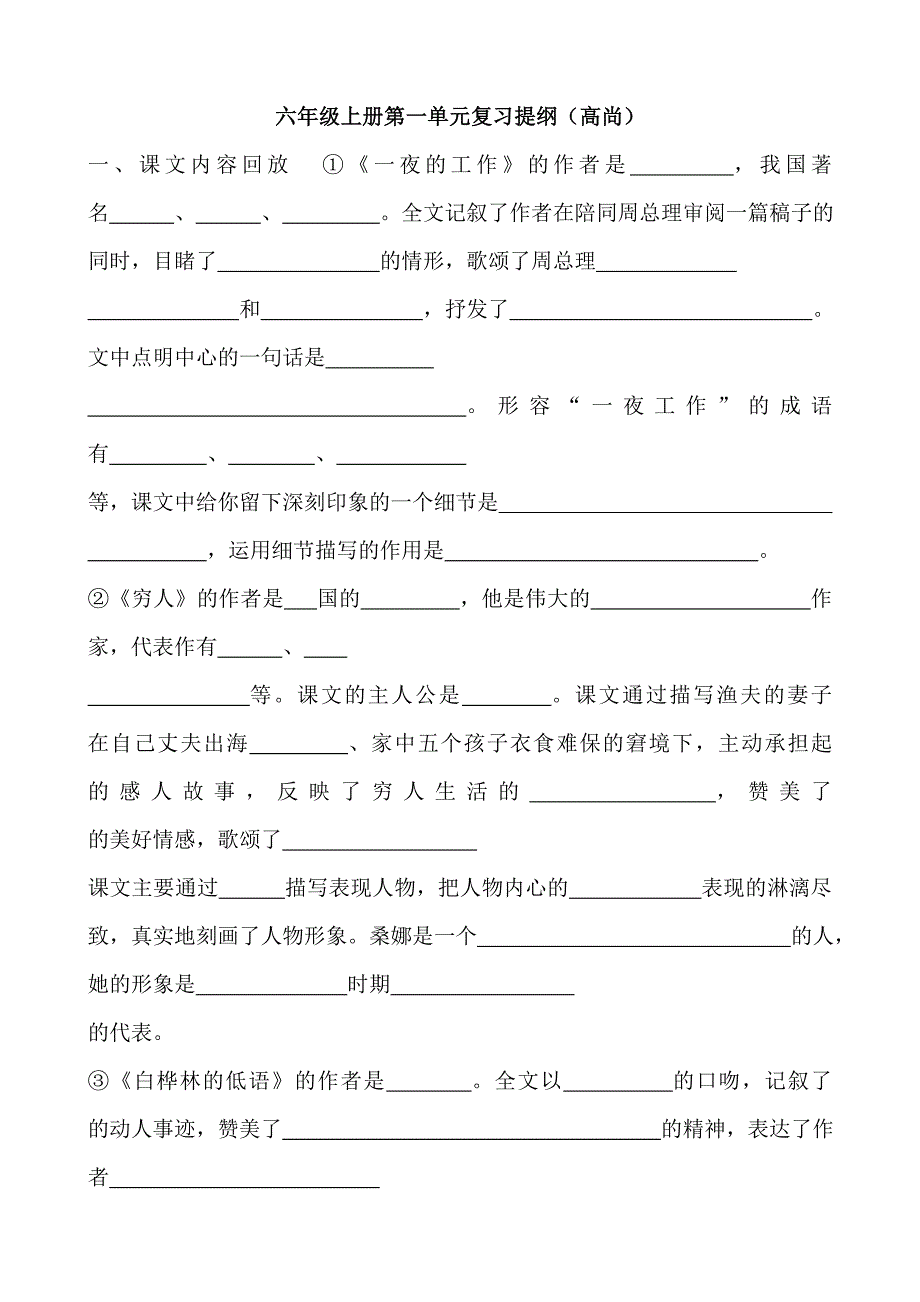 六年级上册第一单元复习提纲（高尚）
一、课文内容回放　①《一夜的工作》的作者是__________，我国著
名______、______、_________。全文记叙了作者在陪同周总理审阅一篇稿子的
同时，目睹了_______________的情形，歌颂了周总理_____________
______________和_______________，抒发了____________________________。
文中点明中心的一句话是__________
___________________________________。形容“一夜工作”的成语
有_________、________、____________
等，课文中给你留下深刻印象的一个细节是_______________________________
___________，运用细节描写的作用是_____________________________。
②《穷人》的作者是___国的_________，他是伟大的____________________作
家，代表作有______、____
_______________等。课文的主人公是________。课文通过描写渔夫的妻子
在自己丈夫出海_________、家中五个孩子衣食难保的窘境下，主动承担起
的感人故事，反映了穷人生活的_________________，赞美了
的美好情感，歌颂了__________________
课文主要通过______描写表现人物，把人物内心的____________表现的淋漓尽
致，真实地刻画了人物形象。桑娜是一个_____________________________的人，
她的形象是______________时期_________________
的代表。
③《白桦林的低语》的作者是________。全文以__________的口吻，记叙了
的动人事迹，赞美了___________________________________的精神，表达了作
者_________________________